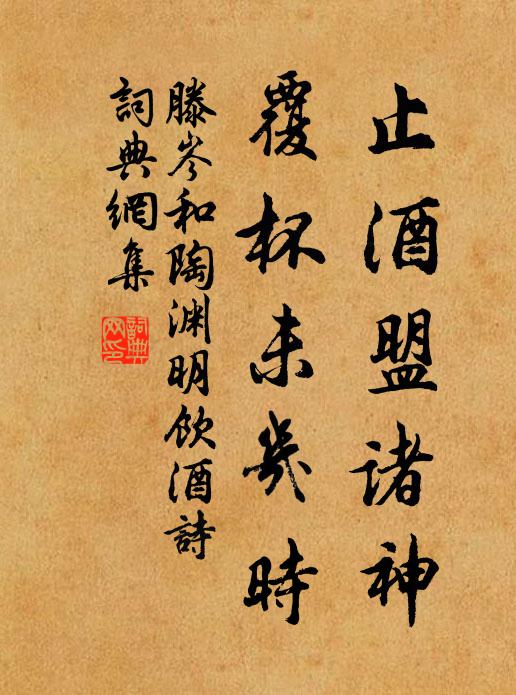 止酒盟诸神
覆杯未幾時
滕岑和陶渊明饮酒詩
詞典網集
詞典网印